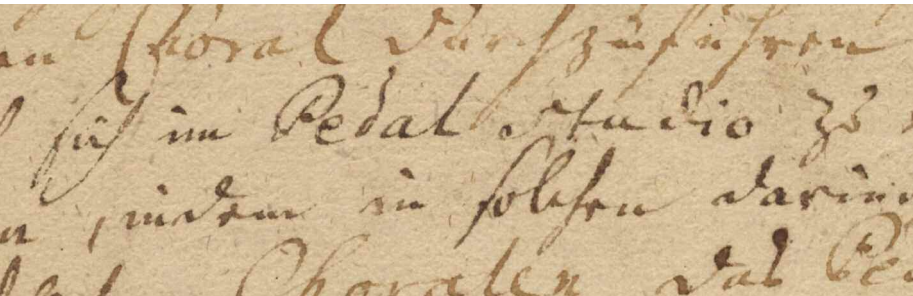 en Choral durchzuführen
sich im Pedal studio zu
indem in solchen darinne
Choralen das Ped